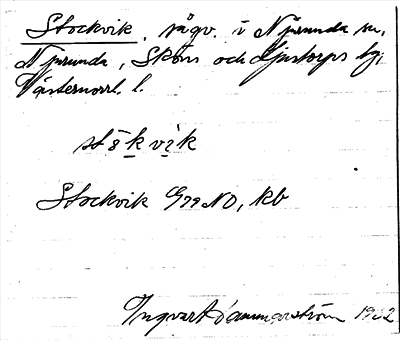 Stockvik, sågv. i Njurunda sn,
Njurunda, Sköns och Ljustorps tg,
Västernorrl. l.
Stockvik G22 NO, kb
Ingvar Hammarström 1932